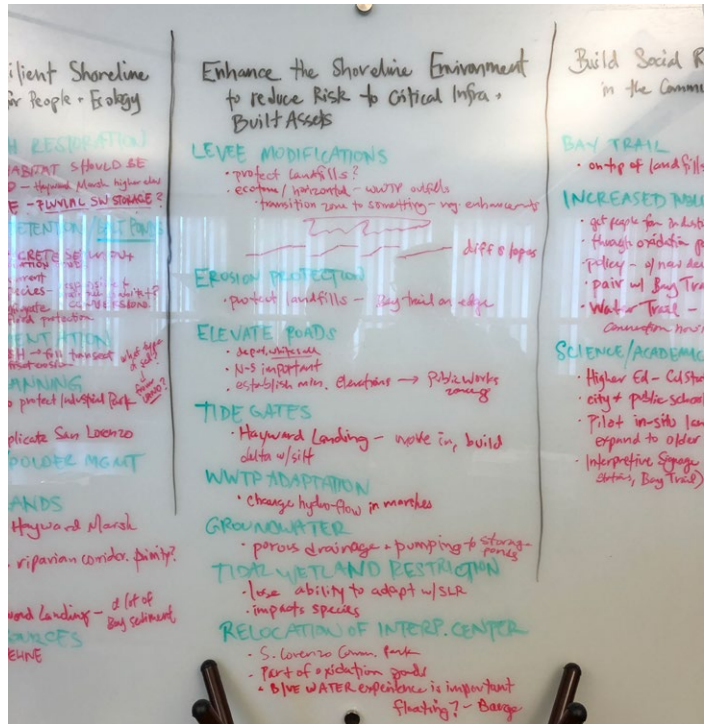 ilient Shoreline
for People + Ecology
H RESTORATION
HABITAT SHOULD BE
Hayward Marsh higher elev
FLUVIAL SW STORAGE?
ETENTION/SALT PONDS
pecies-
flood protection
ENTATION
fill transect
what type
of sedge
ANNING
o protect Industrial Park
plicate San Lorenzo
POLDER MGMT
ANDS
Hayward Marsh
riparian corridor.
ward Landing - a lot of
Bay sediment
OURCES
Enhance the Shoreline Environment
to reduce Risk to Critical Infra +
Built Assets
LEVEE MODIFICATIONS
• protect landfills?
• ecotone/horizontal - WWTP outfells
transition zone to something - veg. enhancements
diff slopes
EROSION PROTECTION
• protect landfills - Bay trail on edge
ELEVATE ROADS
• N-S important
• establish min. elevations → Public works
zoning
TIDE GATES
• Hayward Landing - move in, build
delta w/silt
WWTP ADAPTATION
• change hydro-flow in marshes
GROUNDWATER
• porous drainage + pumping to storage
ponds
TIDAL WETLAND RESTRICTION
• lose ability to adapt w/SLR
• impacts species
RELOCATION OF INTERP. CENTER
• S. Lorenzo Comm. Park
• Part of oxidation ponds
• B/VE WATER experience is important
floating? - Barge
Build Social R
in the Commu
BAY TRAIL
• on top of landfills
INCREASED PUBL
• get people from industr
• through oxidation po
• policy - w/ new dev
• pair w/ Bay Trai
• Water Trail -
SCIENCE/ACADEMIC
• Higher Ed - Cal Stat
• city + public school
• Pilot in-situ lan
expand to older
• Interpretive Signage
Bay Trail)